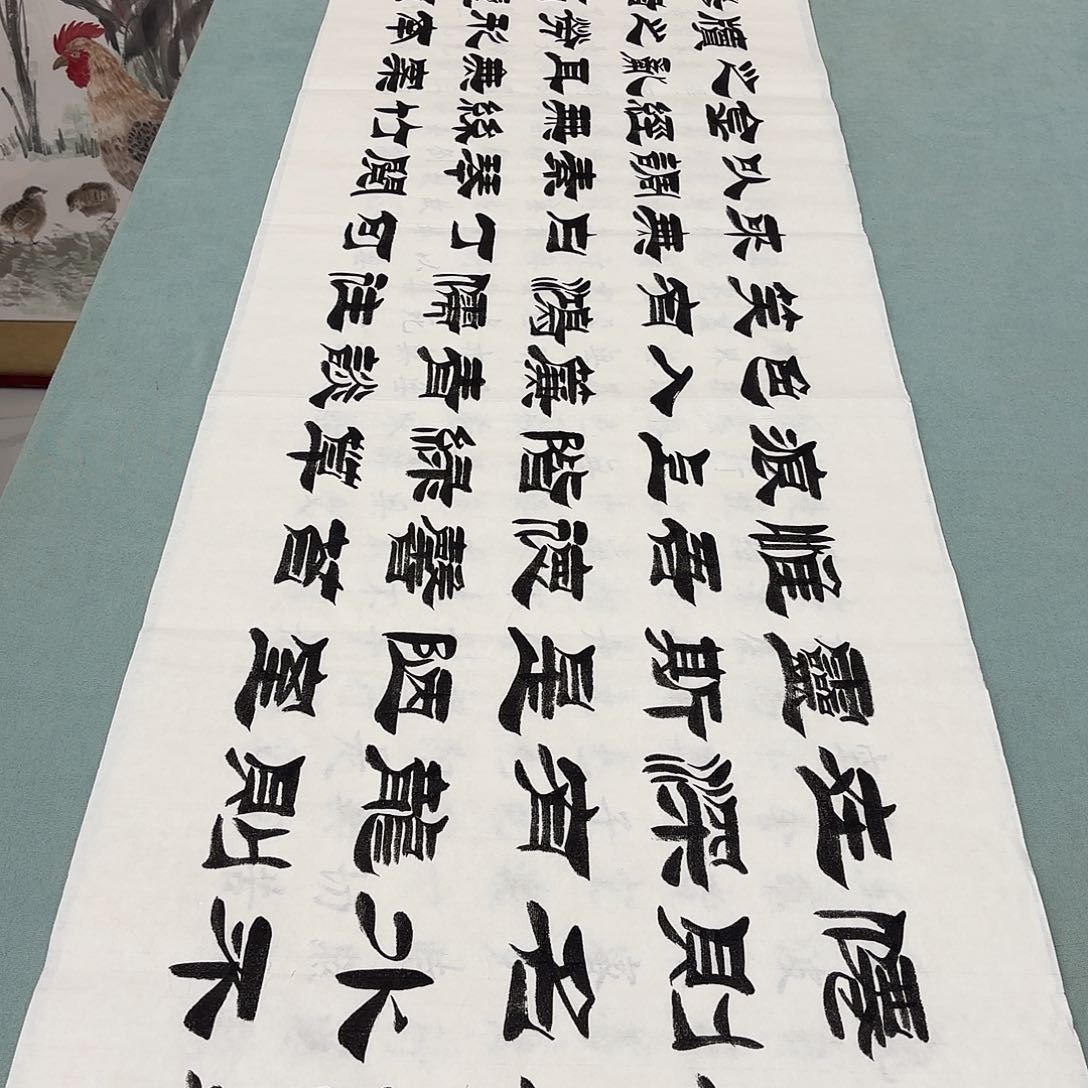 僊則名水不
在深有龍則
靈斯是陋室
惟吾德馨苔
痕上階綠草
色入簾青談
笑有鴻儒往
來無白丁可
以調素琴閱
金經無絲竹
之亂耳無案
牘之勞形南